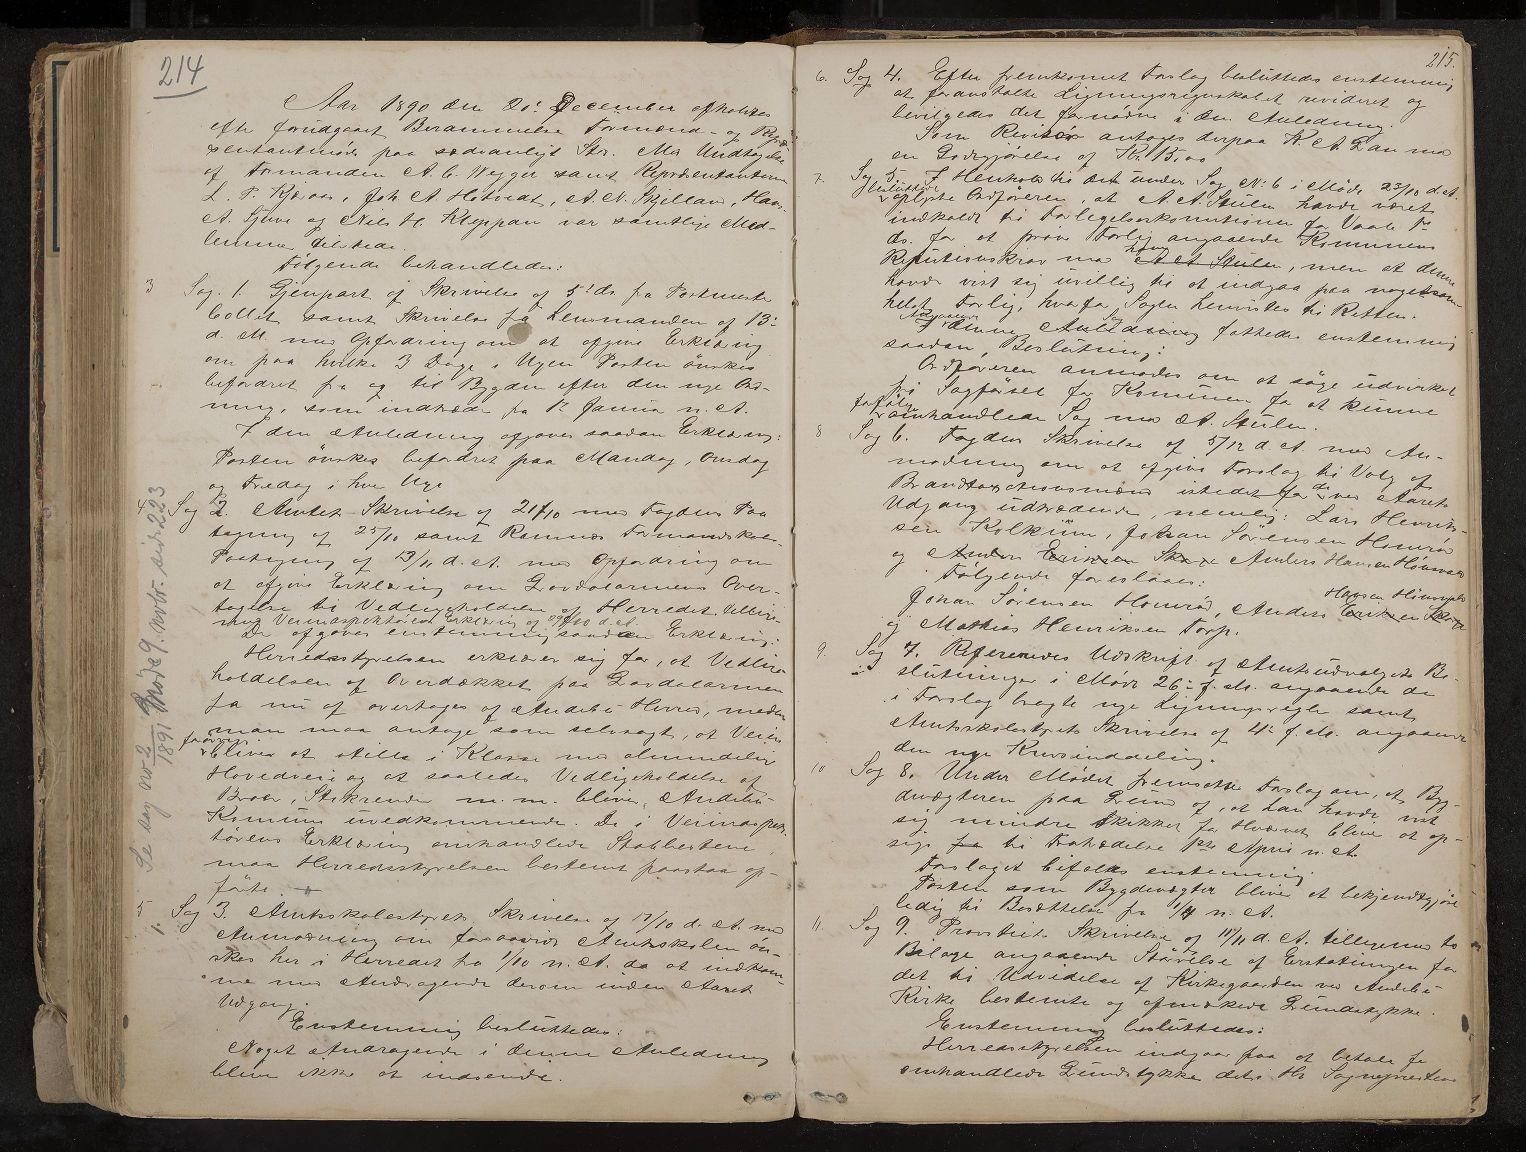 214
Aar 1890 den 20de December afholdtes
efter forudgaaet Berammelse Formænd- og Repræ-
sentantmøde paa sædvanligt Sted. Med Undtagelse
af Formanden A. C. Wegger samt Repræsentanterne
L. P. Kjæraas, Joh. A. Hotvedt, A. N. Skjellau, Hans
A. Sjuve og Nils H. Kleppan var samtlige Med-
lemme tilstede.
Følgende behandledes:
3 Sag 1. Gjenpart af Skrivelse af 5te ds. fra Postmester
Bollet samt Skrivelse fra Lensmanden af 13de
d. M. med Opfordring om at afgive Erklæring
om paa hvilke 3 Dage i Ugen Posten ønskes
befordret fra og til Bygden efter den nye Ord-
ning, som indtræder fra 1ste Januar n. A.
I den Anledning afgaves saadan Erklæring:
Posten ønskes befordret paa Mandag, Onsdag
og Fredag i hver Uge
4 Sag 2. Amtets Skrivelse af 21/10 med Fogdens Paa
tegning af 25/10 samt Ramnes Formandskabs
Paategning af 13/11 d. A. med Opfordring om
at afgive Erklæring om Gravdalarmens Over-
tagelse til Vedligeholdelse af Herredet tilligemed
Veiinspektørens Erklæring af 29/10 d. A.
Der afgaves enstemmig saadan Erklæring:
Herredsstyrelsen erklærer sig for, at Vedlige-
holdelsen af Overdækket paa Gravdalarmen
fra nu af overtages af Andebu Herred, medens
man maa antage som selvsagt, at Veien
forøvrigt
bliver at stille i Klasse med almindelig
Hovedvei og at saaledes Vedligeholdelse af
Broer, Stikrender m. m. bliver Andebu
Kommune uvedkommende. De i Veiinspek-
tørens Erklæring omhandlede Stabbestene
maa Herredsstyrelsen bestemt paastaa op-
førte.
5 Sag 3. Amtsskolestyrets Skrivelse af 17/10 d. A. med
Anmodning om forsaavidt Amtsskolen øn-
skes her i Herredet fra 1/10 n. A. da at indkom-
me med Andragende derom inden Aarets
Udgang.
Enstemmig besluttedes:
Noget Andragende i denne Anledning
bliver ikke at indsende.
Se sag no 2 Møde 9. novbr. 1891 side 223
215.
6. Sag 4. Efter fremkommet Forslag besluttedes enstemmig
at foranstalte Ligningsregnskabet revideret og
bevilgedes det fornødne i den Anledning.
Som Revisor antoges derpaa K. A. Gran mod
en Godtgjørelse af Kr. 15,00
7. Sag 5. I Henhold til det under Sag No 6 i Møde 23/10 d. A.
besluttede
oplyste Ordføreren, at A. A. Stulen havde været
indkaldt til Forligelseskommissionen for Vaale
ds. for at prøve Forlig angaaende Kommunens
Refusionskrav mod ham A A Stulen, men at denne
havde vist sig uvillig til at indgaa paa nogetsom-
helst Forlig, hvorfor Sagen henvistes til Retten.
I denne Anledning fattedes enstemmig
saadan Beslutning:
Ordføreren anmodes om at søge udvirket
fri Sagførsel for Kommunen for at kunne
forfølge
omhandlede Sag mod A A. Stulen.
8 Sag 6. Fogdens Skrivelse af 5/12 d. A. med An-
modning om at afgive Forslag til Valg af
Brandtaxationsmænd istedetfor de ved Aarets
Udgang udtrædende, nemlig: Lars Henrik-
sen Kolkinn, Johan Sørensen Honerød
og Anders Eriksen Skove Anders Hansen Hønsvald
Følgende foreslaaes:
Johan Sørensen Honerød, Anders Eriksen Skove Hansen Hønsvald
og Mathias Henriksen Torp.
9. Sag 7. Refereredes Udskrift af Amtsudvalgets Be-
slutninger i Møde 26de f. M. angaaende de
i Forslag bragte nye Ligningsregler samt
Amtsskolestyrets Skrivelse af 4de f. M. angaaende
den nye Kursinddeling.
10 Sag 8. Under Mødet fremsattes Forslag om, at Byg-
devægteren paa Grund af, at han havde vist
sig mindre skikket for Hvervet bliver at op-
sige til Fratrædelse 1ste April n. A.
Forslaget bifaldes enstemmig.
Posten som Bygdevægter bliver at bekjendtgjøre
ledig til Besættelse fra 1/4 n. A.
11. Sag 9. Provstiets Skrivelse af 10/11 d. A. tilligemed to
Bilage angaaende Størrelse af Erstatningen for
det til Udvidelse af Kirkegaarden ved Andebu
Kirke bestemte og afmærkede Grundstykke.
Enstemmig besluttedes:
Herredsstyrelsen indgaar paa at betale for
omhandlede Grundstykke det i Hr. Sognepræstens